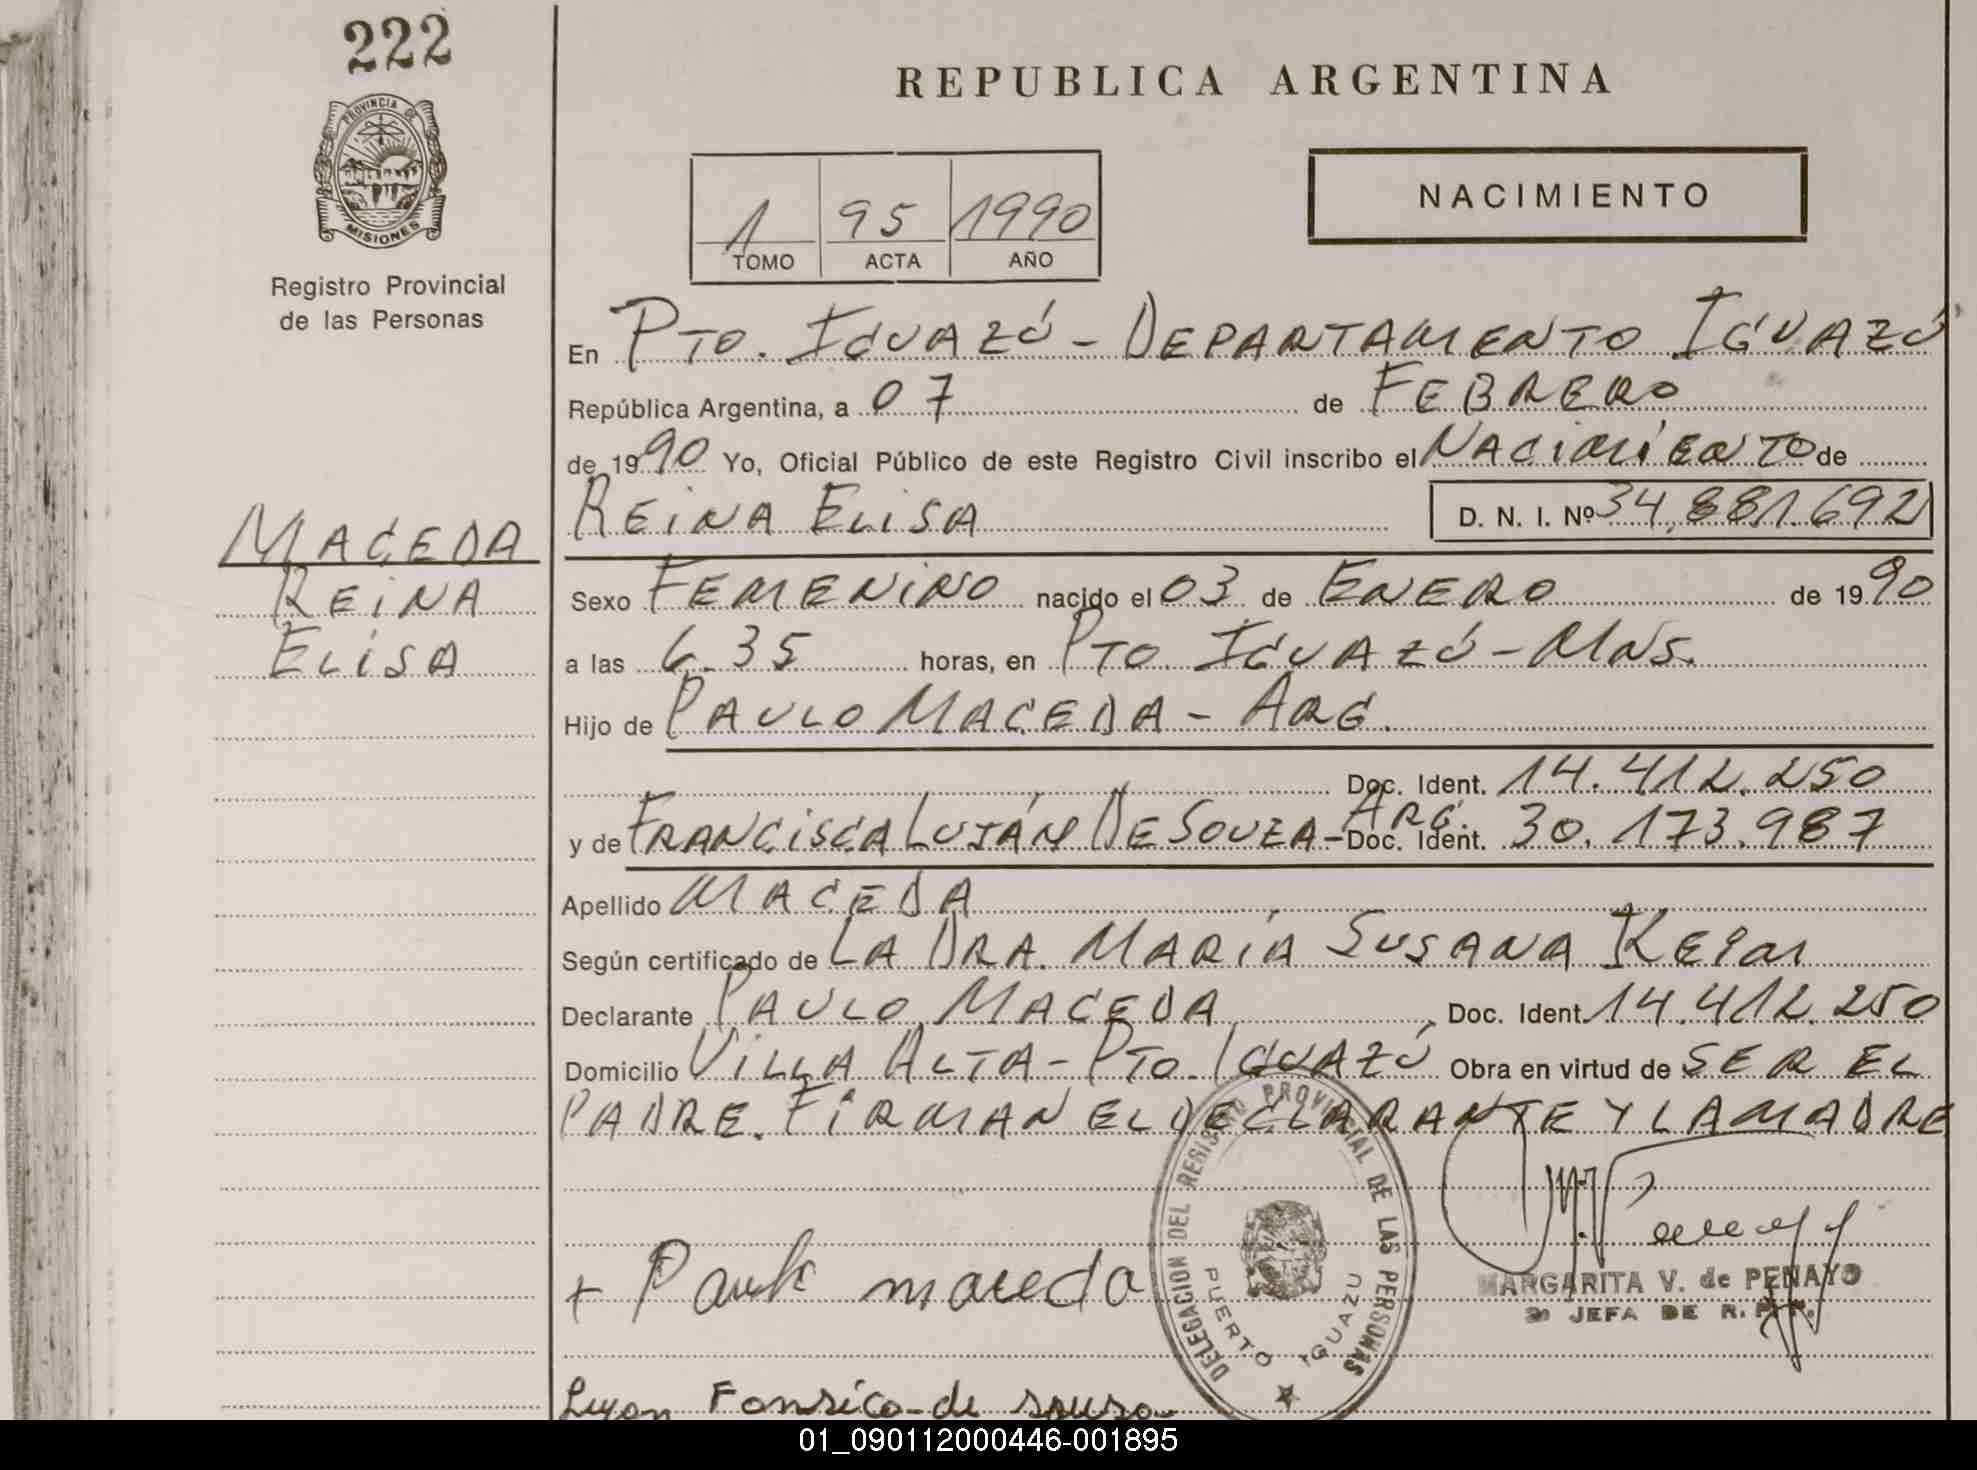 222
REPUBLICA ARGENTINA
PROVINCIA DE
MISIONES
Registro Provincial
de las Personas
1 95 1990
TOMO ACTA AÑO
NACIMIENTO
En PTO. IGUAZÚ - DEPARTAMENTO IGUAZÚ
República Argentina, a 07 de FEBRERO
de 1990 Yo, Oficial Público de este Registro Civil inscribo el NACIMIENTO de
REINA ELISA D. N. I. Nº 34.881.692
MACEDA
REINA
ELISA
Sexo FEMENINO nacido el 03 de ENERO de 1990
a las 6.35 horas, en PTO. IGUAZÚ - MNS.
Hijo de PAULO MACEDA - ARG.
Doc. Ident. 14.412.250
y de FRANCISCA LUJÁN DE SOUZA - ARG. Doc. Ident. 30.173.987
Apellido MACEDA
Según certificado de LA DRA. MARÍA SUSANA
Declarante PAULO MACEDA, Doc. Ident. 14.412.250
Domicilio VILLA ALTA - PTO. IGUAZÚ Obra en virtud de SER EL
PADRE. FIRMAN EL DECLARANTE Y LA MADRE
+ Paulo maceda
DELEGACION DEL REGISTRO PROVINCIAL DE LAS PERSONAS
PUERTO IGUAZU
MARGARITA V. de PENAYO
JEFA DE R. P. P.
de souza
01_090112000446-001895